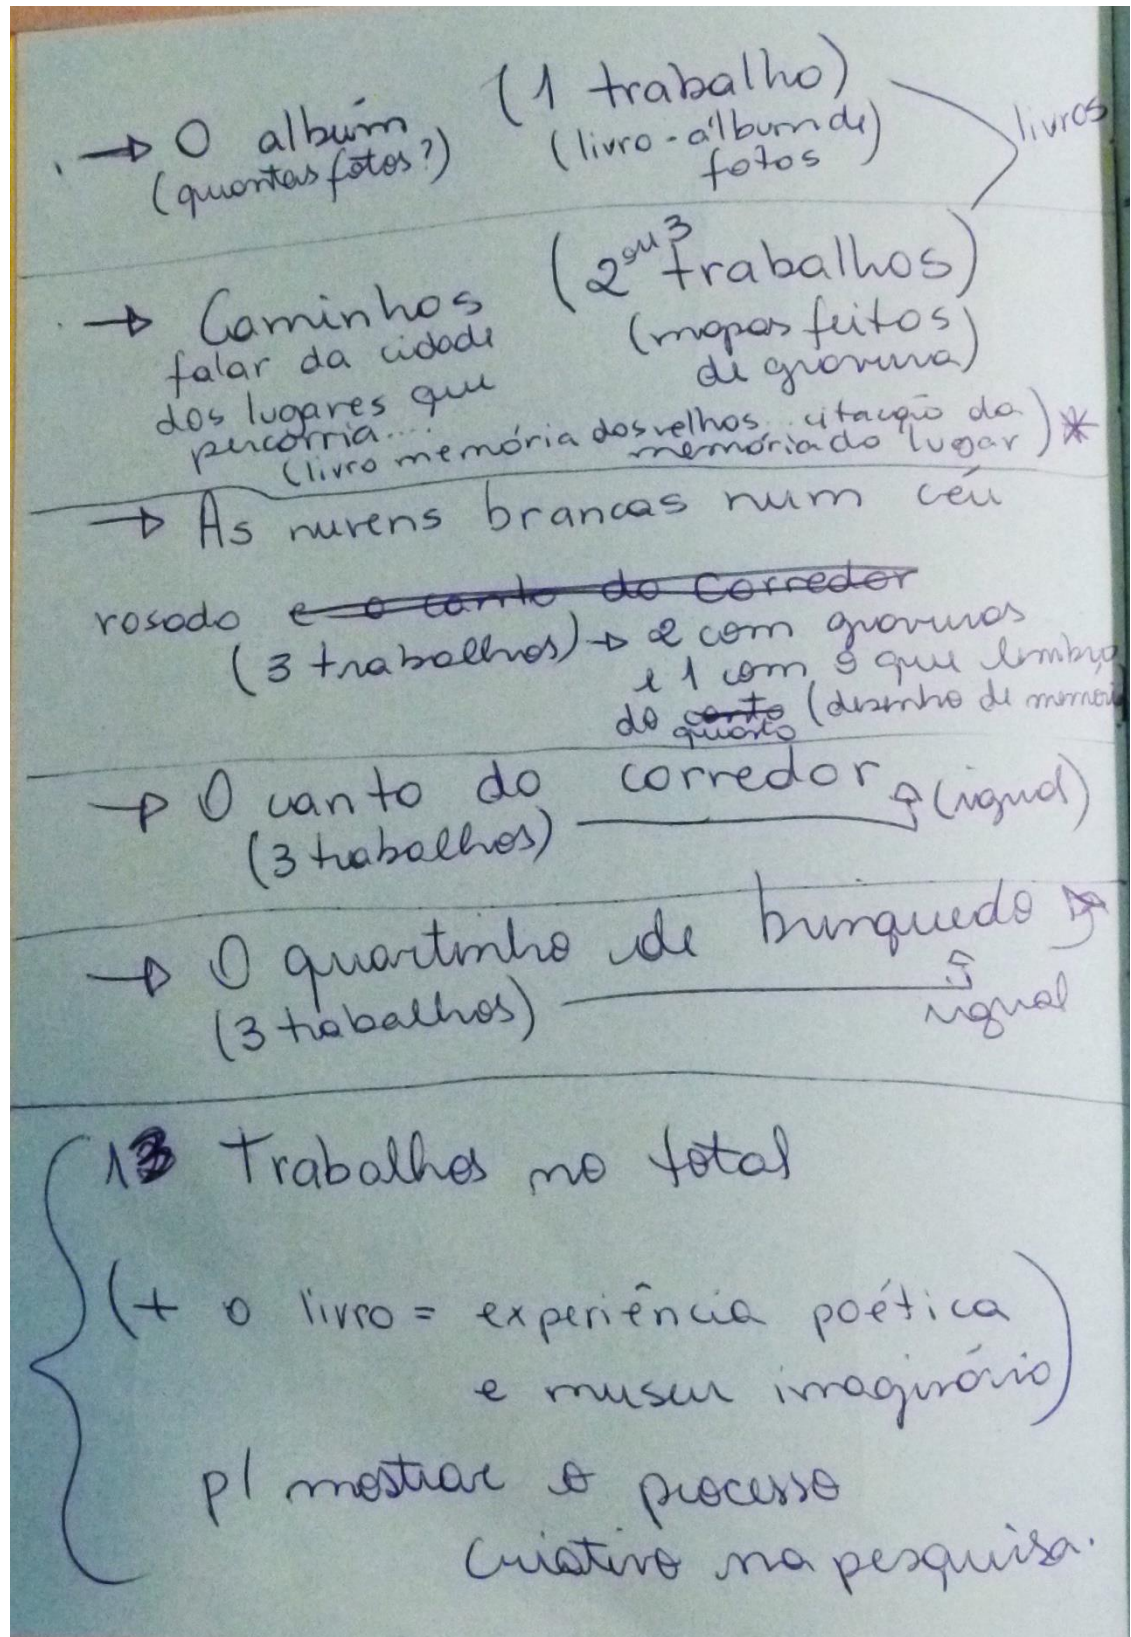 → O albúm (1 trabalho)
(quantas fotos?) (livro-álbum de
fotos)
livros
→ Caminhos (2 ou 3 trabalhos)
falar da cidade (mapas feitos
dos lugares que de gravura)
percorria....
(livro memória dos velhos... citação da
memória do lugar) *
→ As nuvens brancas num céu
rosado e o canto do corredor
(3 trabalhos) → 2 com gravuras
e 1 com o que lembro
do canto (desenho de memória
quarto
→ O canto do corredor
(3 trabalhos) (igual)
→ O quartinho de brinquedo
(3 trabalhos) igual
13 Trabalhos no total
(+ o livro = experiência poética
e museu imaginário)
p/ mostrar o processo
criativo na pesquisa.